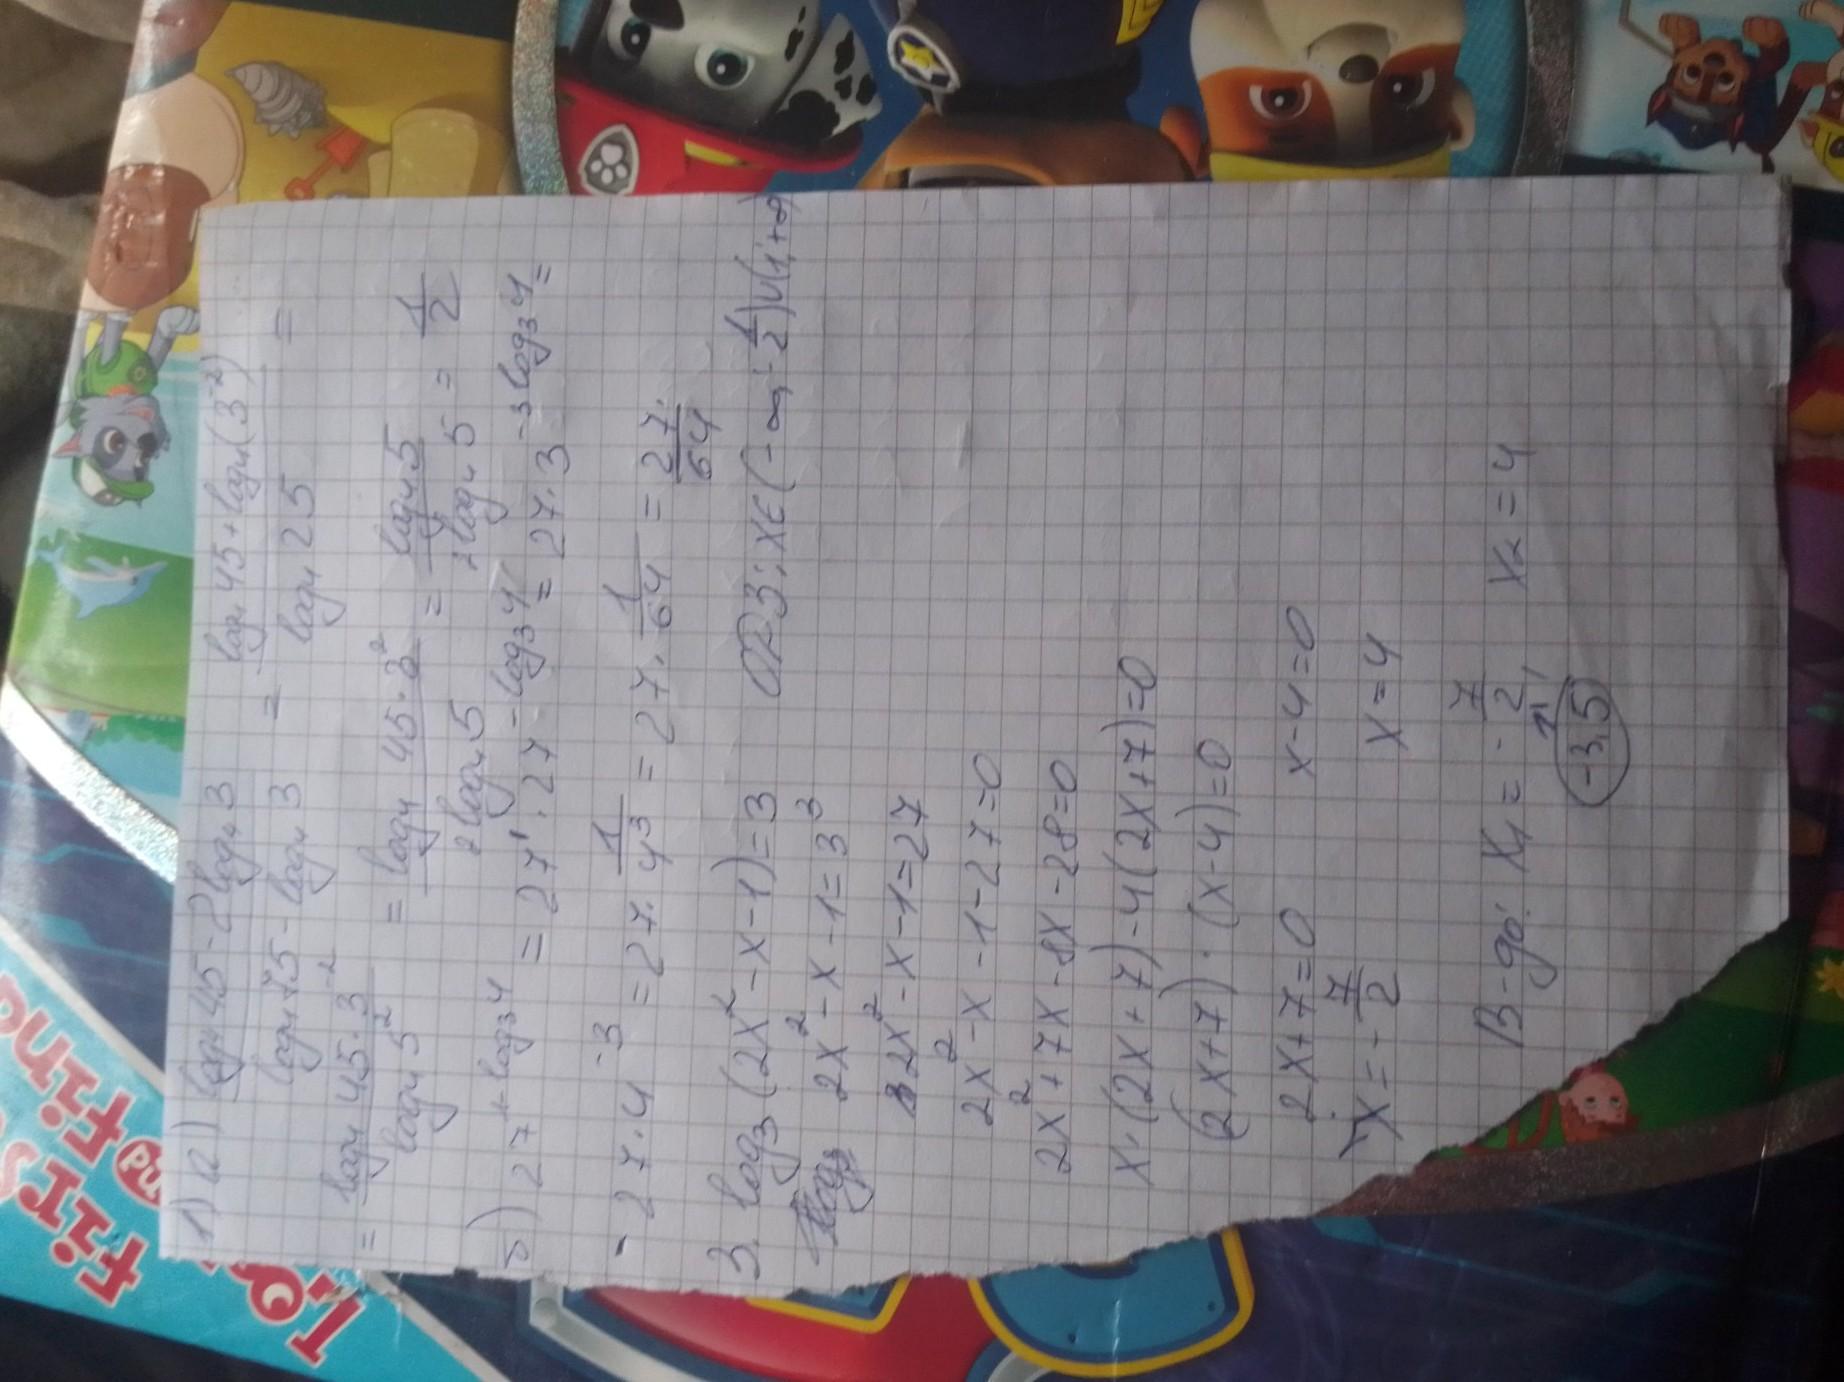 1) а) (log₄45-2log₄3)/(log₄75-log₄3) = (log₄45+log₄(3⁻²))/(log₄25) =
= (log₄45·3⁻²)/(log₄5²) = (log₄45·3⁻²)/(2log₄5) = (log₄5)/(2log₄5) = 1/2
б) 27^(1-log₃4) = 27¹·27^(-log₃4) = 27·3^(-3log₃4) =
- 27·4⁻³ = 27·1/4³ = 27·1/64 = 27/64.
3. log₃(2x²-x-1)=3 ОДЗ: x∈(-∞;-1/2)∪(1;+∞)
2x²-x-1=3³
2x²-x-1=27
2x²-x-1-27=0
2x²+7x-8x-28=0
x·(2x+7)-4(2x+7)=0
(2x+7)·(x-4)=0
2x+7=0 x-4=0
x=-7/2 x=4
В-дь: x₁=-7/2, x₂=4
-3,5
First
and
find